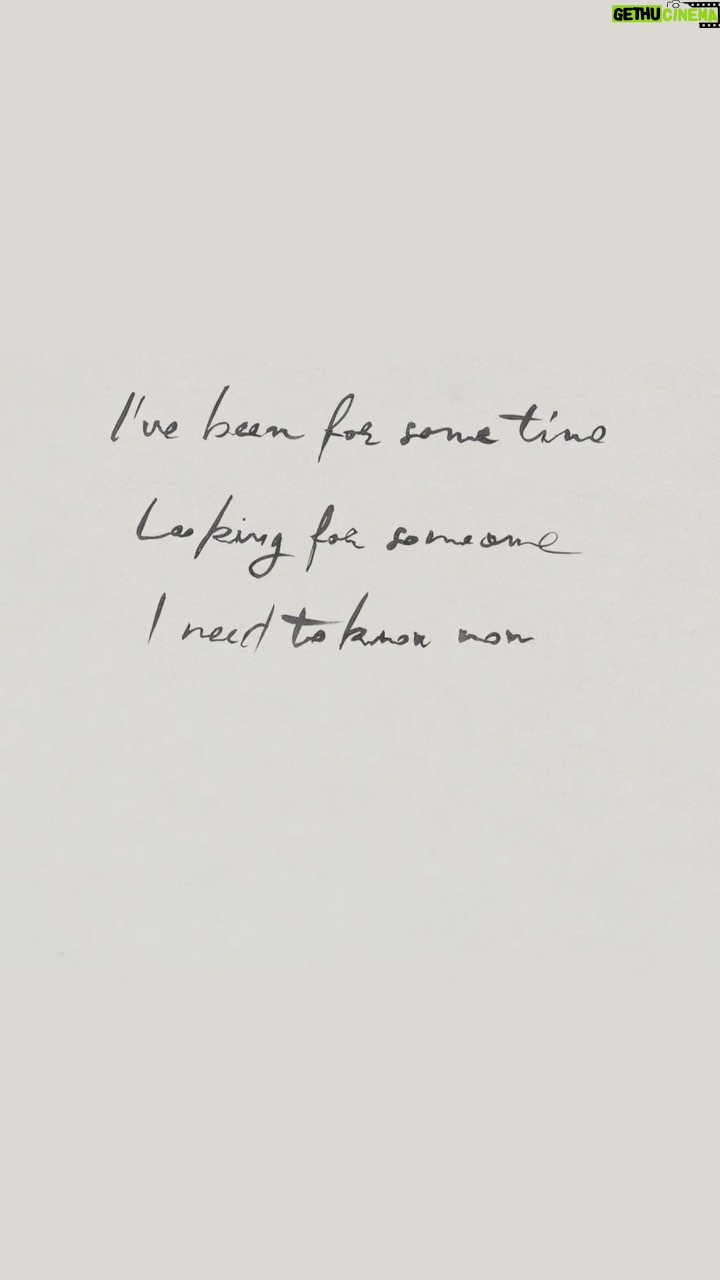 GETHUCINEMA
I've been for some time
Looking for someone
I need to know now